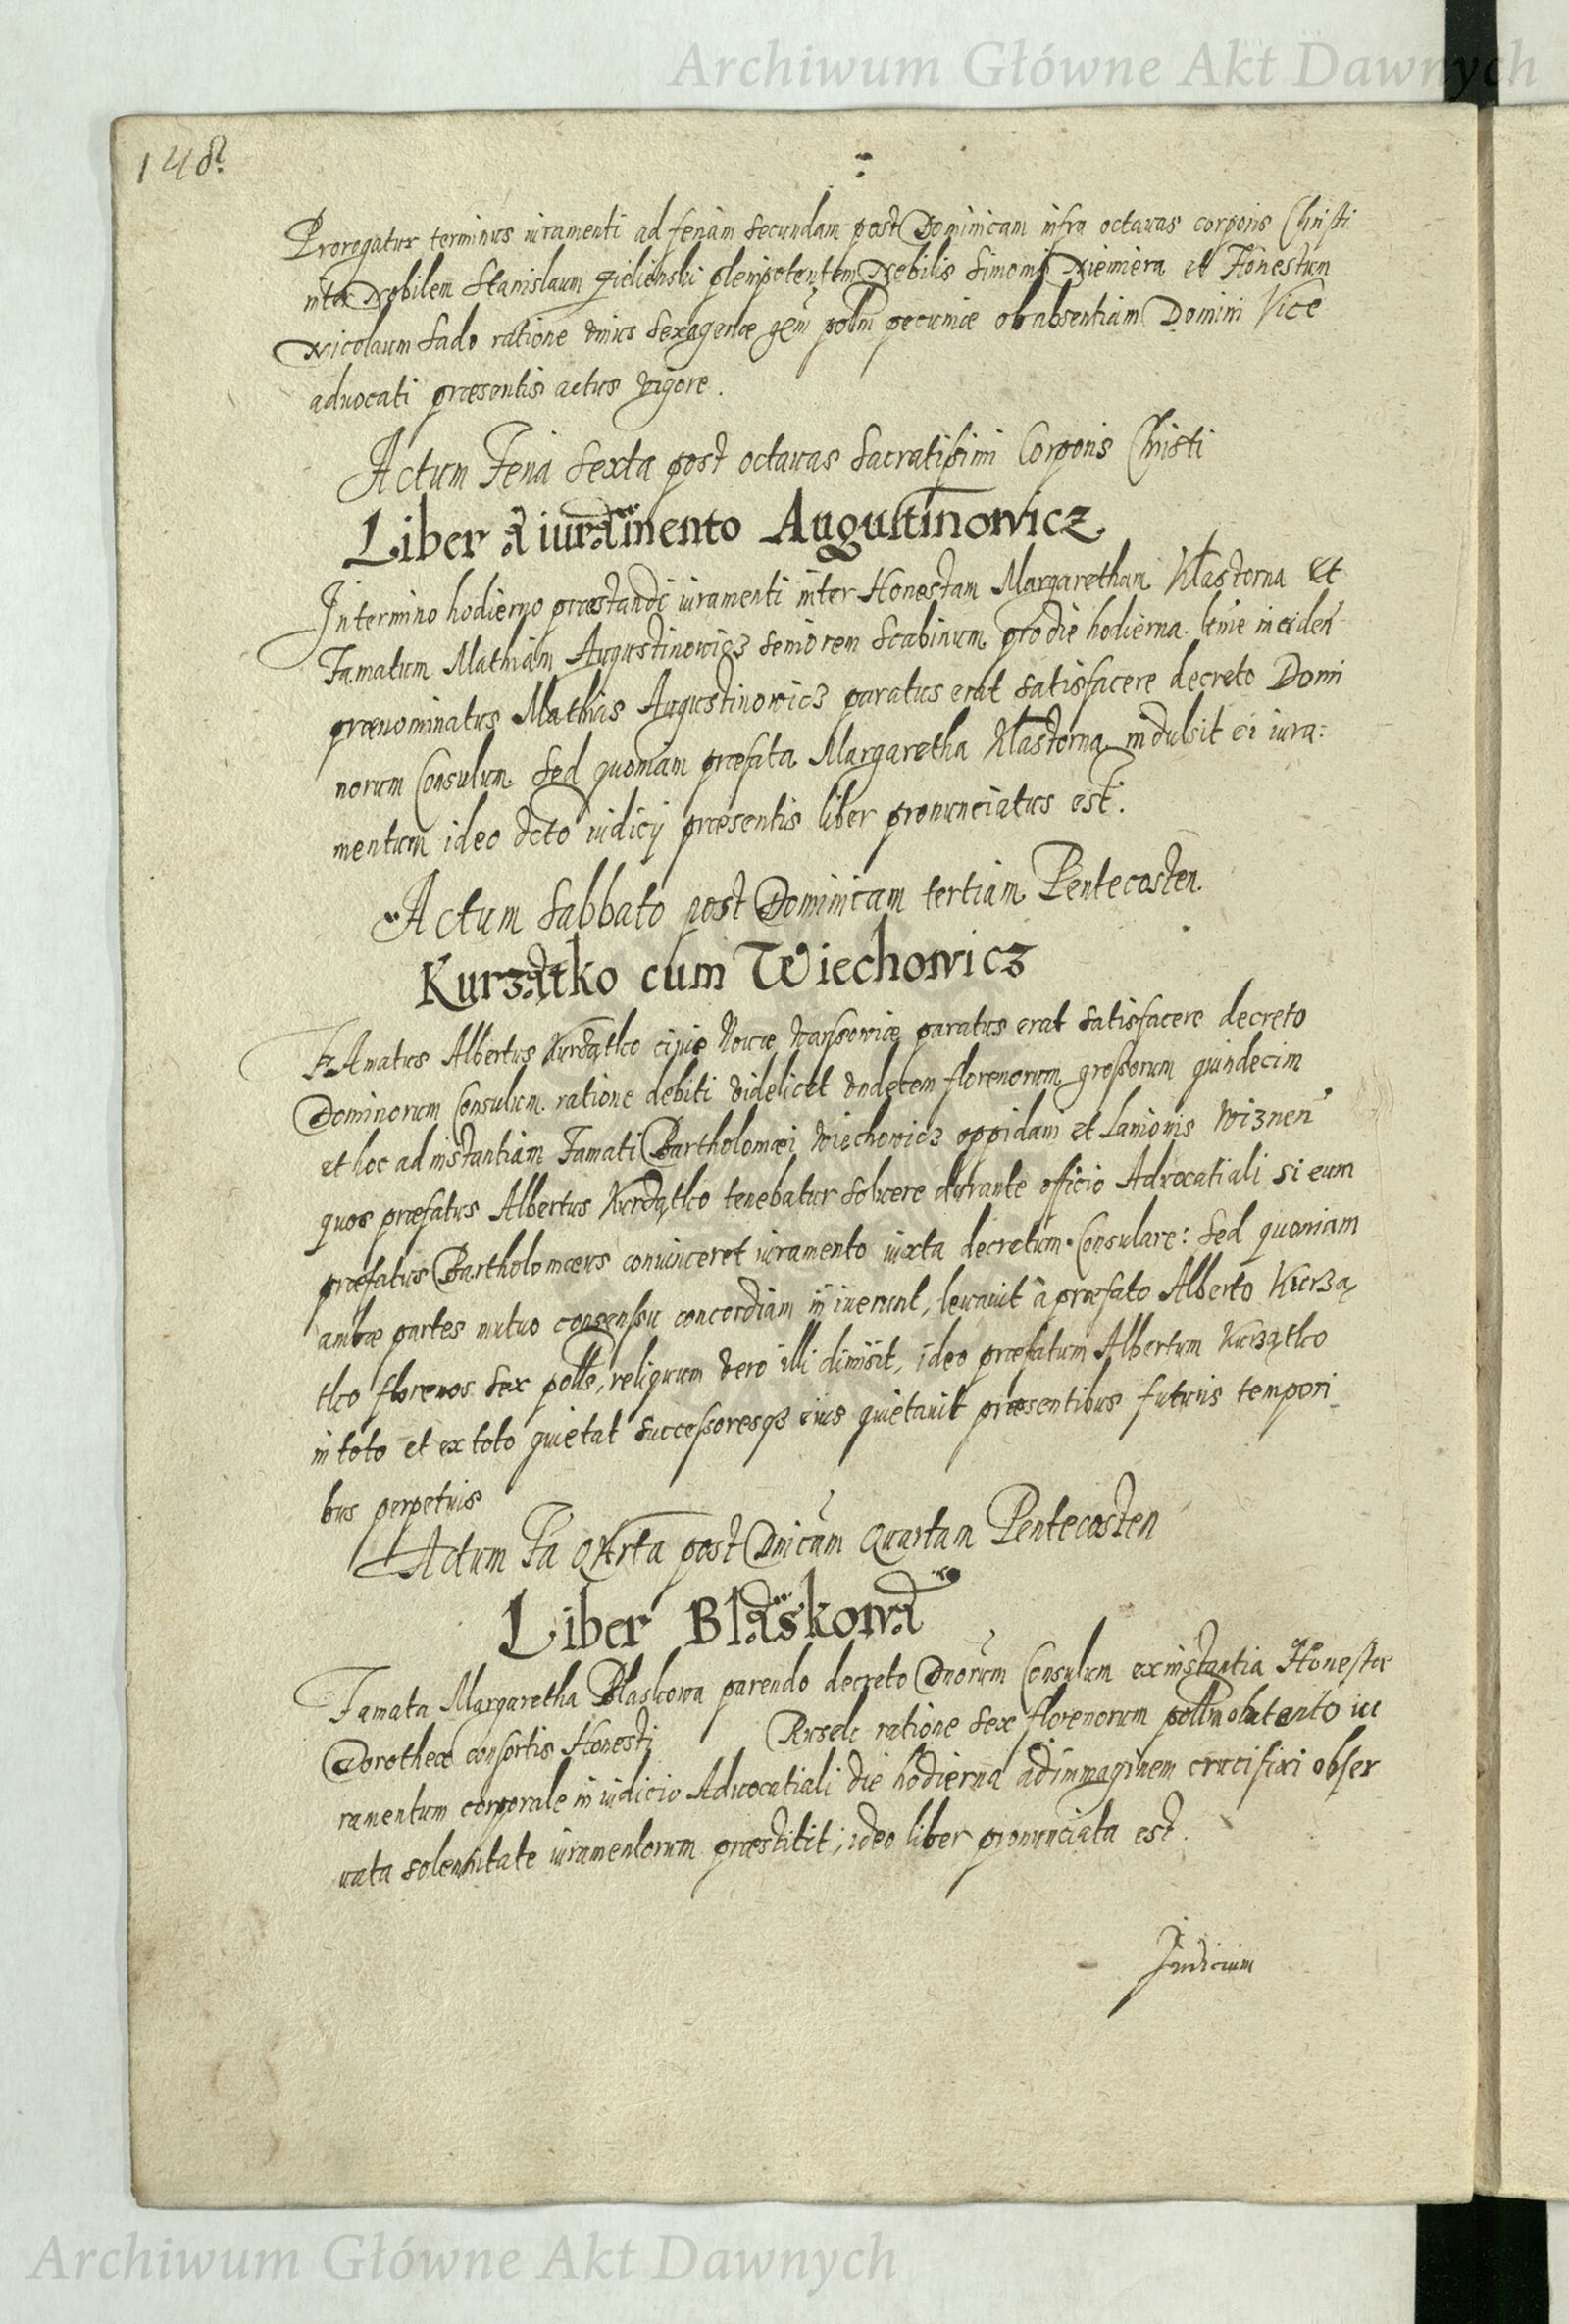 Archiwum Główne Akt Dawnych
148
Prorogatur terminus iuramenti ad feriam secundam post Dominicam infra octauas corporis Christi
inter Nobilem Stanislaum Zielienski plenipotentem Nobilis Simonis Niemiera et Honestum
Nicolaum Sado ratione vnius sexagenæ pecuniæ ob absentiam Domini Vice
aduocati præsentis actus vigore.
Actum Feria Sexta post octauas Sacratissimi Corporis Christi
Liber à iuramento Augustinowicz
In termino hodierno præstandi iuramenti inter Honestam Margaretham Klastorna et
Famatum Mathiam Augustinowicz seniorem Scabinum pro die hodierna
prænominatus Mathias Augustinowicz paratus erat satisfacere decreto Domi
norum Consulum sed quoniam præfata Margaretha Klastorna indulsit ei iura:
mentum ideo dcto iudicij præsentis liber pronunciatus est.
Actum Sabbato post Dominicam tertiam Pentecosten
Kurzątko cum Wiechowicz
FAmatus Albertus Kurdątko ciuis Nouæ Warssouiæ paratus erat satisfacere decreto
Dominorum Consulum ratione debiti videlicet vndecem florenorum grossorum quindecim
et hoc ad instantiam Famati Bartholomæi Wiechowicz oppidani et Lanionis Wiznen
quos præfatus Albertus Kurdątko tenebatur soluere durante officio Aduocatiali si eum
præfatus Bartholomæus conuinceret iuramento iuxta decretum Consulare: sed quoniam
ambæ partes mutuo consensu concordiam inierunt, leuauit à præfato Alberto Kurzą
tko florenos sex polls, reliquum vero illi dimisit, ideo præfatum Albertum Kurzątko
in toto et ex toto quietat successoresqz eius quietauit præsentibus futuris tempori
bus perpetuis
Actum Fa Qurta post Dnicam Quartam Pentecosten
Liber Blaskowa
Famata Margaretha Blaskowa parendo decreto Dnorum Consulum ex instantia Honestæ
Dorotheæ consortis Honesti Rusek ratione sex florenorum iu
ramentum corporale in iudicio Aduocatiali die hodierna ad immaginem crucifixi obser
uata solennitate iuramentorum præstitit, ideo liber pronunciata est.
Iudicium
Archiwum Główne Akt Dawnych